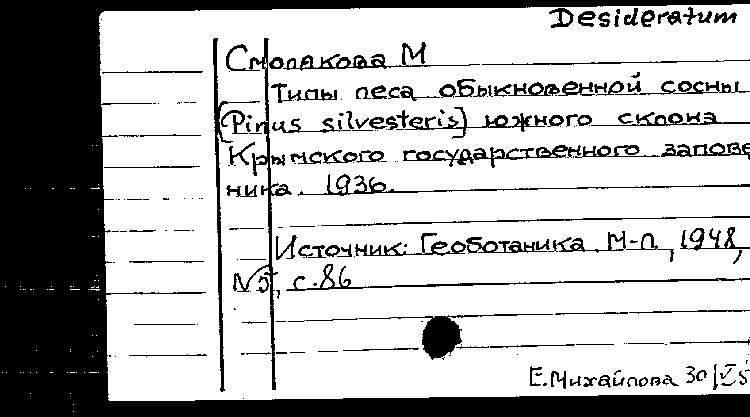 Desideratum
Смолякова М
Типы леса обыкновенной сосны
(Pinus silvesteris) южного склона
Крымского государственного запове
ника. 1936.
Источник: Геоботаника. М-Л, 1948,
№5, с.86
Е.Михайлова 30/V